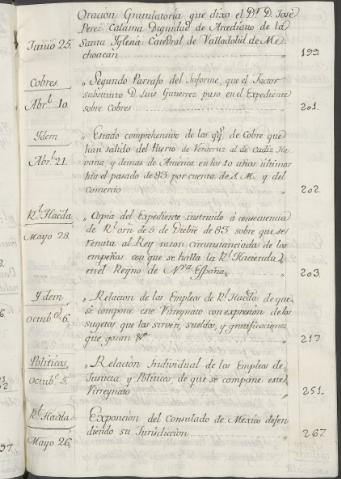 Oración Gratulatoria que dixo el Dr. D. José
Perez Calama Dignidad de Arcediano de la
Junio 25. Santa Iglesia Catedral de Valladolid de Me-
choacan 199
Cobres Segundo Parrafo del Informe, que el Factor
substituto D. Luis Gutierrez puso en el Expediente
Abrl. 10. sobre Cobres 201.
Ydem Estado comprehensivo de las qq. de Cobre que
han salido del Puerto de Veracruz al de Cadiz Ha-
Abrl. 21. vana y demas de America en los 10 años ultimos
hta el pasado de 85 por cuenta de S. M. y del
Comercio 202
Rl. Hacda. Copia del Expediente instruido á consecuencia
de Rl. orn de 5 de Dicbre de 85 sobre que se
Mayo 28. remita al Rey razon circunstanciada de los
empeños con que se halla la Rl. Hacienda
en el Reyno de Nva. España 203
Ydem Relacion de los Empleos de Rl. Hacda. de que
se compone este Virreynato con expresion de los
Octubre 6. Sugetos que las sirven, sueldos, y gratificaciones
que gozan &a 217
Politicas Relación Individual de los Empleos de
Justicia y Politicos de que se compone este
Octubre 5. Virreynato 251.
Rl. Hacda. Exposicion del Consulado de Mexico defen-
diendo su Jurisdiccion 267
Mayo 26.